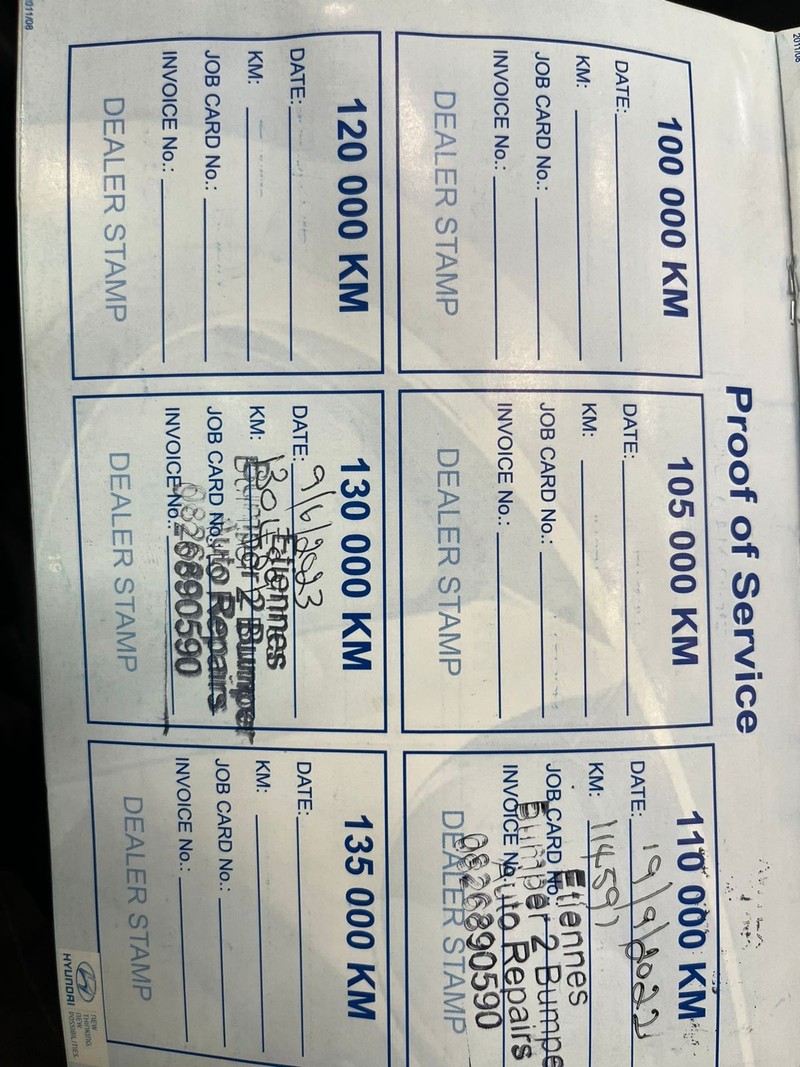 Proof of Service
100 000 KM
DATE:
KM:
JOB CARD No.:
INVOICE No.:
DEALER STAMP
105 000 KM
DATE:
KM:
JOB CARD No.:
INVOICE No.:
DEALER STAMP
110 000 KM
DATE: 19/9/2022
KM: 114591
JOB CARD No.:
INVOICE No.:
DEALER STAMP
Etiennes
Bumper 2 Bumper
Auto Repairs
0826890590
120 000 KM
DATE:
KM:
JOB CARD No.:
INVOICE No.:
DEALER STAMP
130 000 KM
DATE: 9/6/2023
KM:
JOB CARD No.:
INVOICE No.:
DEALER STAMP
Etiennes
Bumper 2 Bumper
Auto Repairs
0826890590
135 000 KM
DATE:
KM:
JOB CARD No.:
INVOICE No.:
DEALER STAMP
19
HYUNDAI
NEW
THINKING.
NEW
POSSIBILITIES.
2011/08
2011/08